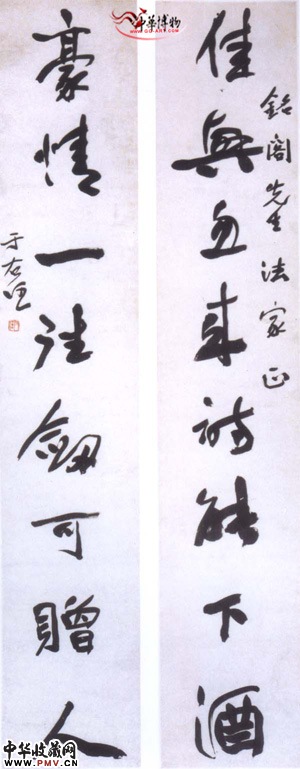 中华博物
WWW.GG-ART.COM
銘閣先生法家正
佳興忽來詩能下酒
豪情一往劒可贈人
于右任
中华收藏网
www.PMV.CN